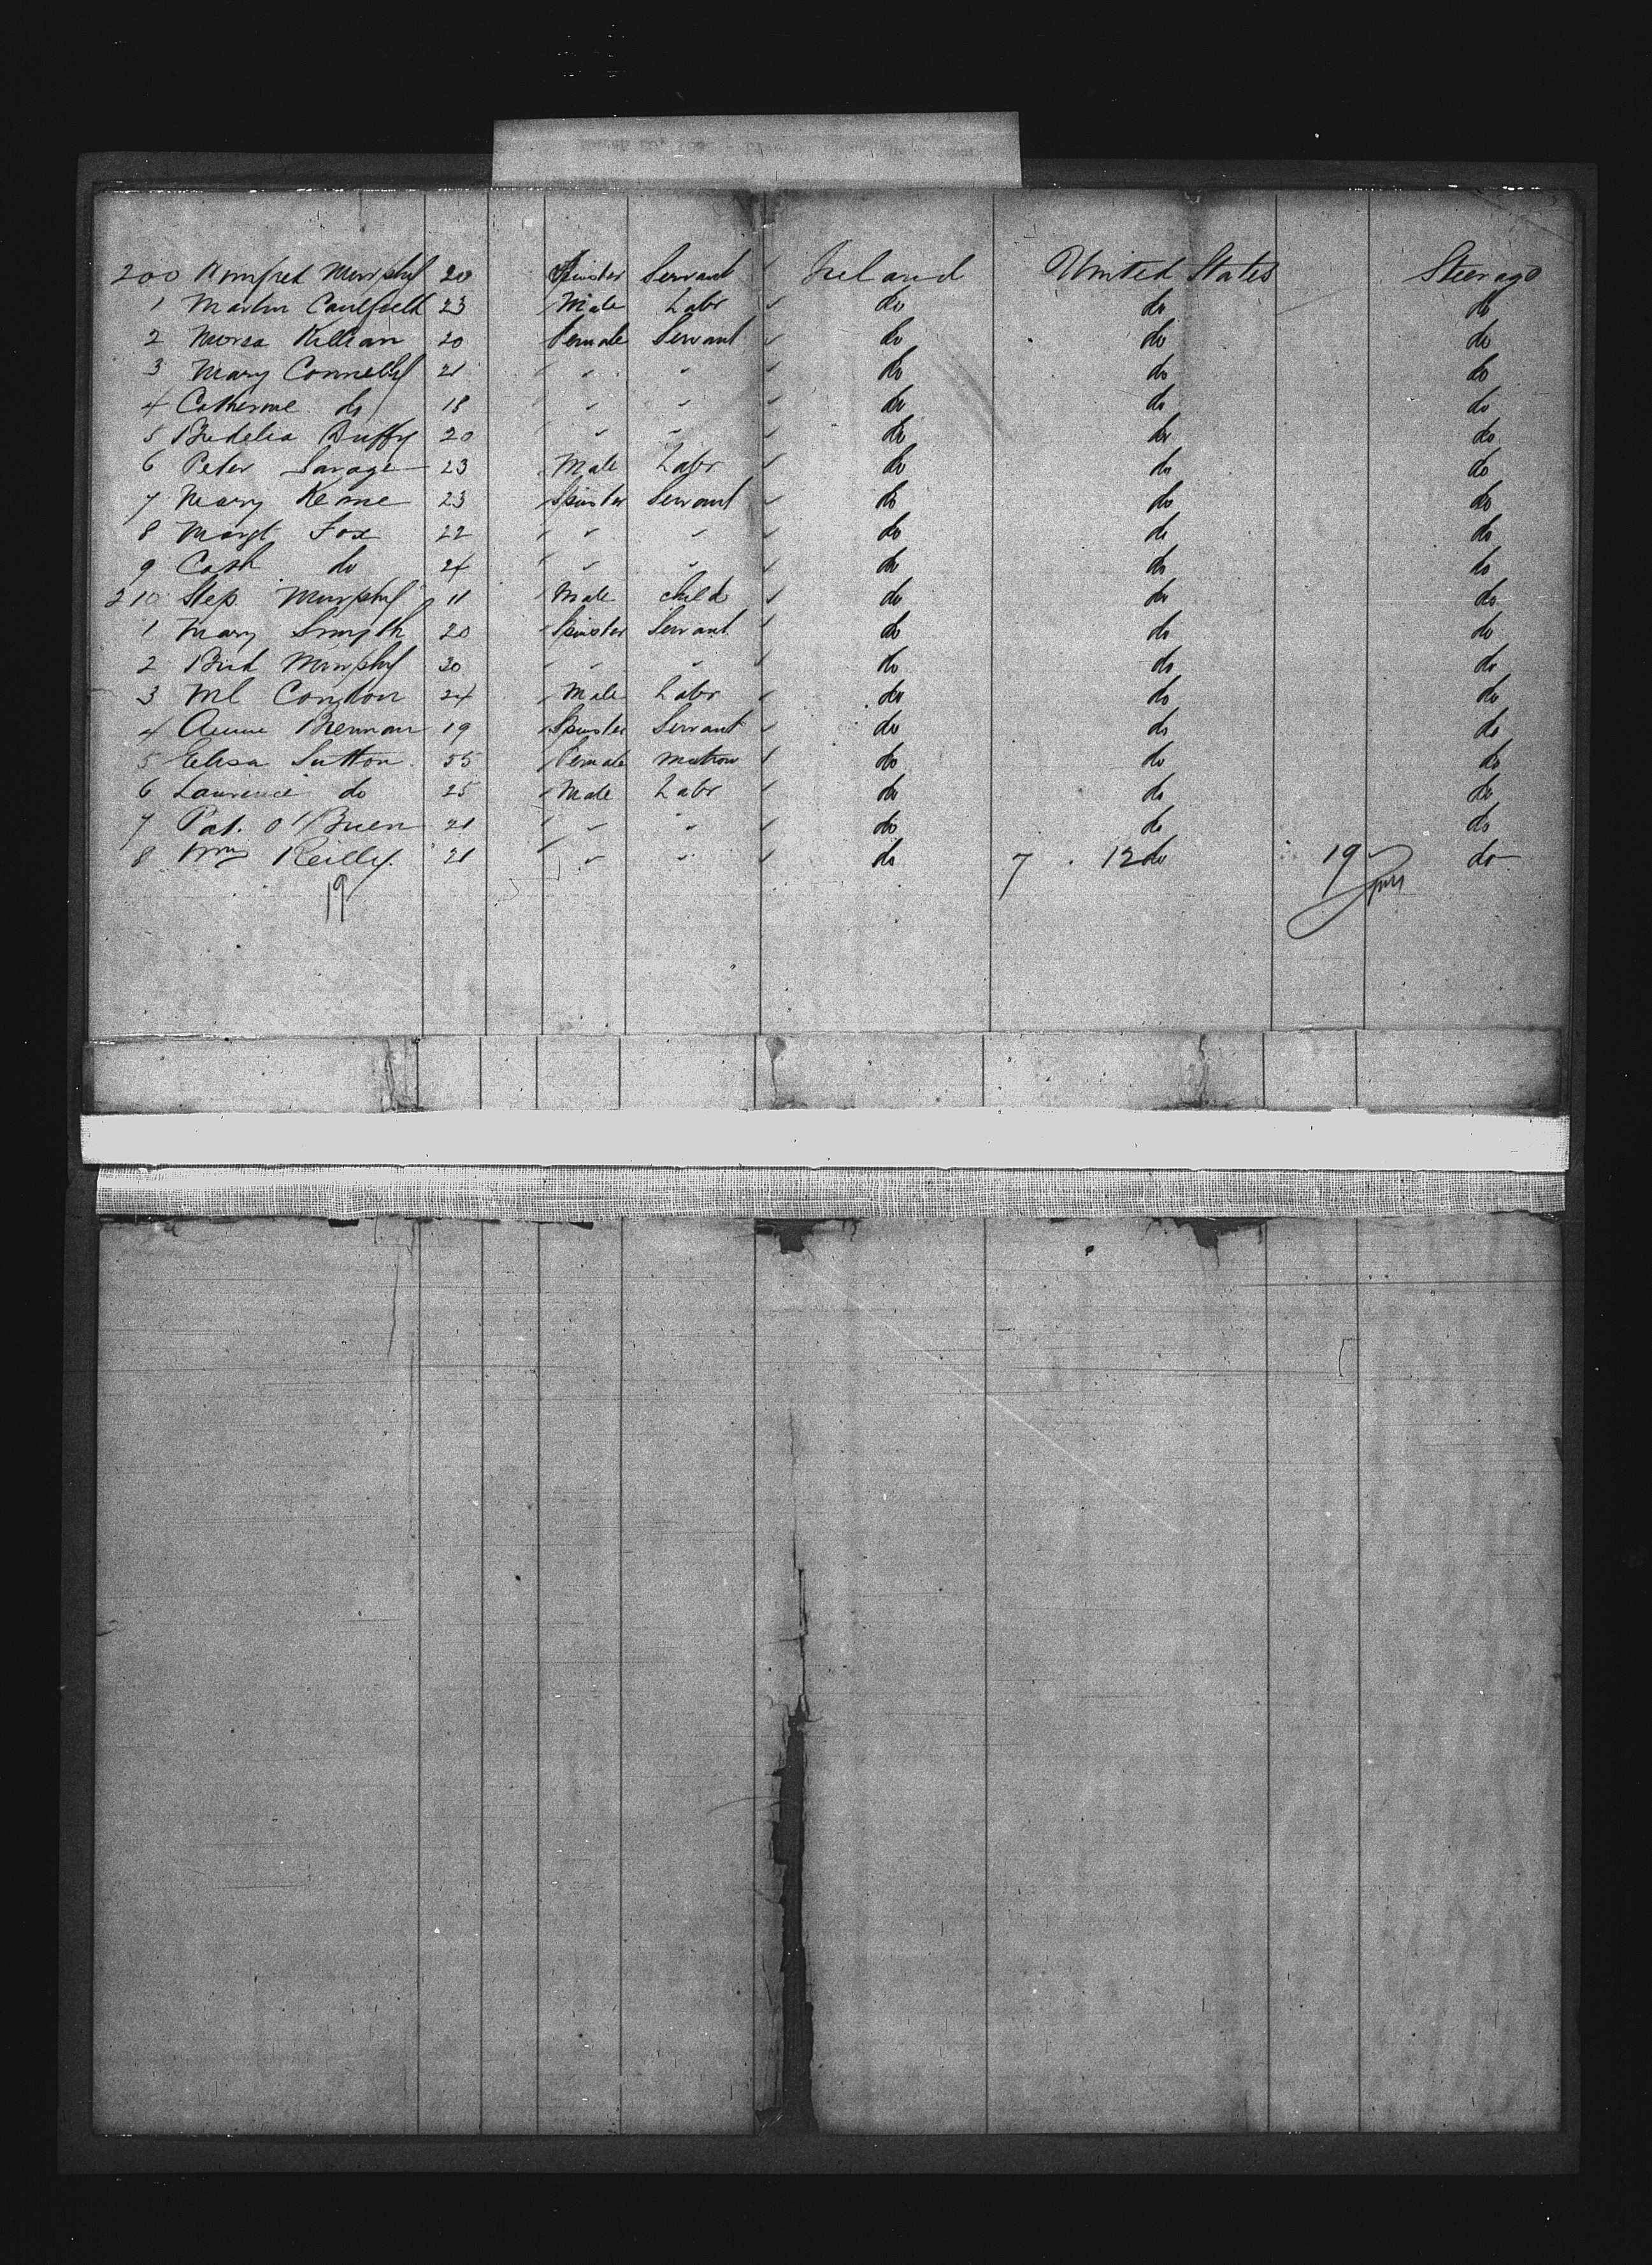 200 Winifred Murphy 20 Spinster Servant Ireland United States Steerage
1 Martin Caulfield 23 Male Labr do do do
2 Norea Killian 20 Female Servant do do do
3 Mary Connelly 21 " " do do do
4 Catherine do 18 " " do do do
5 Bedelia Duffy 20 " " do do do
6 Peter Savage 23 Male Labr do do do
7 Mary Keane 23 Spinster Servant do do do
8 Margt Fox 22 " " do do do
9 Cath do 24 " " do do do
210 Step Murphy 11 Male Child do do do
1 Mary Smyth 20 Spinster Servant do do do
2 Brid Murphy 30 " " do do do
3 Ml Congdon 24 Male Labr do do do
4 Annie Brennan 19 Spinster Servant do do do
5 Elisa Sutton 55 Female Matron do do do
6 Laurence do 25 Male Labr do do do
7 Pat. O'Brien 21 " " do do do
8 Wm Reilly. 21 " " do 7 12 do 19 do
19